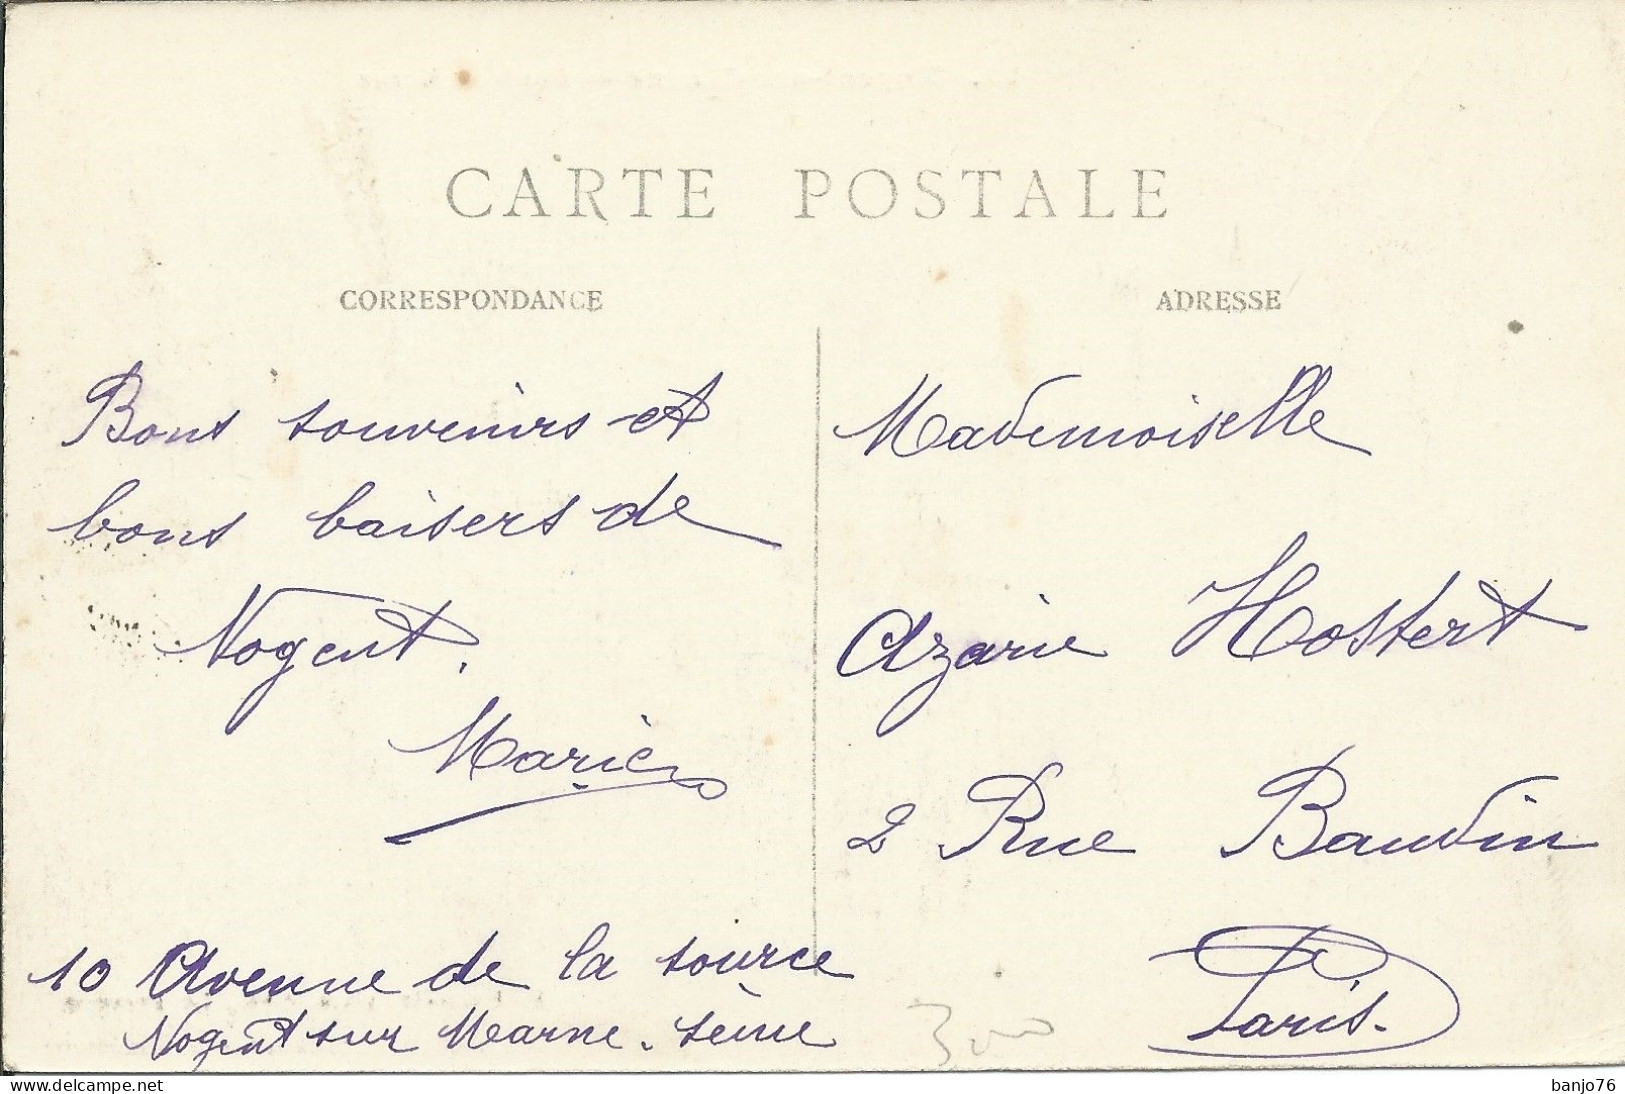 CARTE POSTALE
CORRESPONDANCE
Bons souvenirs et
bons baisers de
Nogent.
Marie
10 Avenue de la source
Nogent sur Marne. seine
ADRESSE
Mademoiselle
Azarie Hostert
2 Rue Baudin
Paris.
Delcampe.net
banjo76